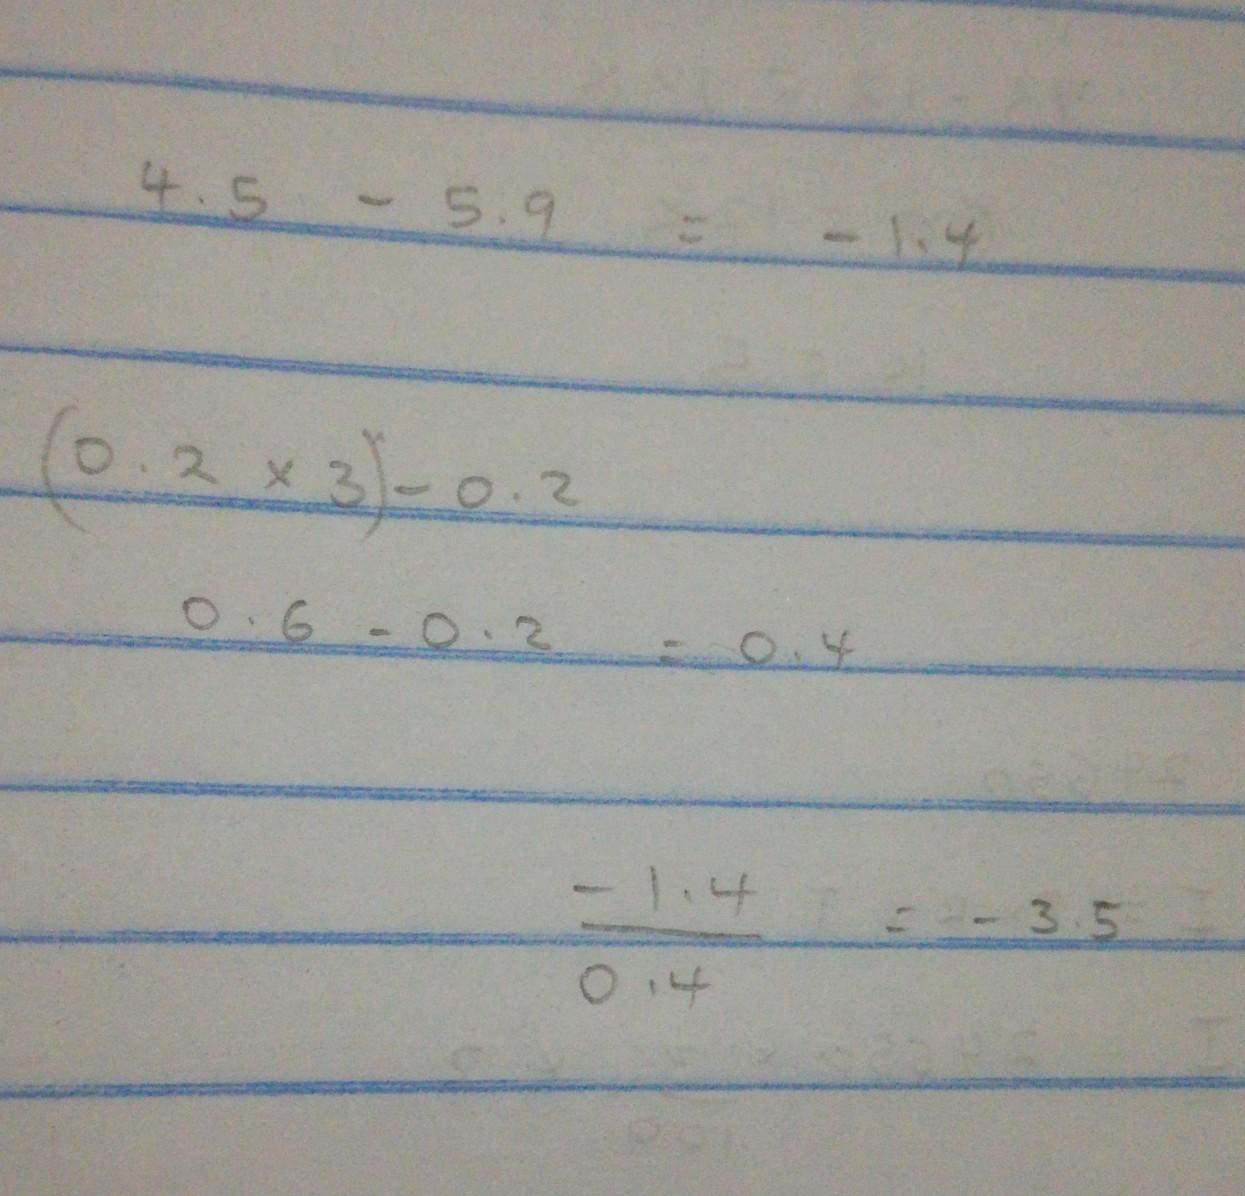 4.5 - 5.9 = -1.4
(0.2 × 3) - 0.2
0.6 - 0.2 = 0.4
-1.4
0.4
= -3.5